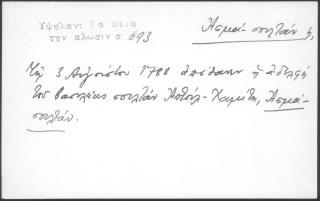 Υψηλαντ Τα μετα
την αλωσιν σ 693
Ἀσμαὶ-σουλτάν ἡ,
Τῇ 3 Αὐγούστου 1788 ἀπέθανεν ἡ ἀδελφὴ
τοῦ βασιλέως σουλτὰν Ἀπτούλ-Χαμίτη, Ἀσμαὶ-
σουλτάν.